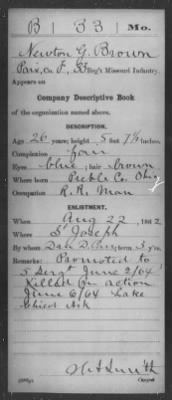 B 33 Mo.
Newton G. Brown
Co. F, 33 Reg't Missouri Infantry.
Appears on
Company Descriptive Book
of the organization named above.
DESCRIPTION.
Age 26 years; height 5 feet 7¼ inches.
Complexion fair
Eyes blue; hair brown
Where born Preble Co. Ohio
Occupation R.R. Man
ENLISTMENT.
When Aug 22, 1862
Where St Joseph
By whom; term 3 y'rs.
Remarks: Promoted to
5 Sergt June 2/64
Killed in action
June 6/64 Lake
Chicot Ark
Copyist.